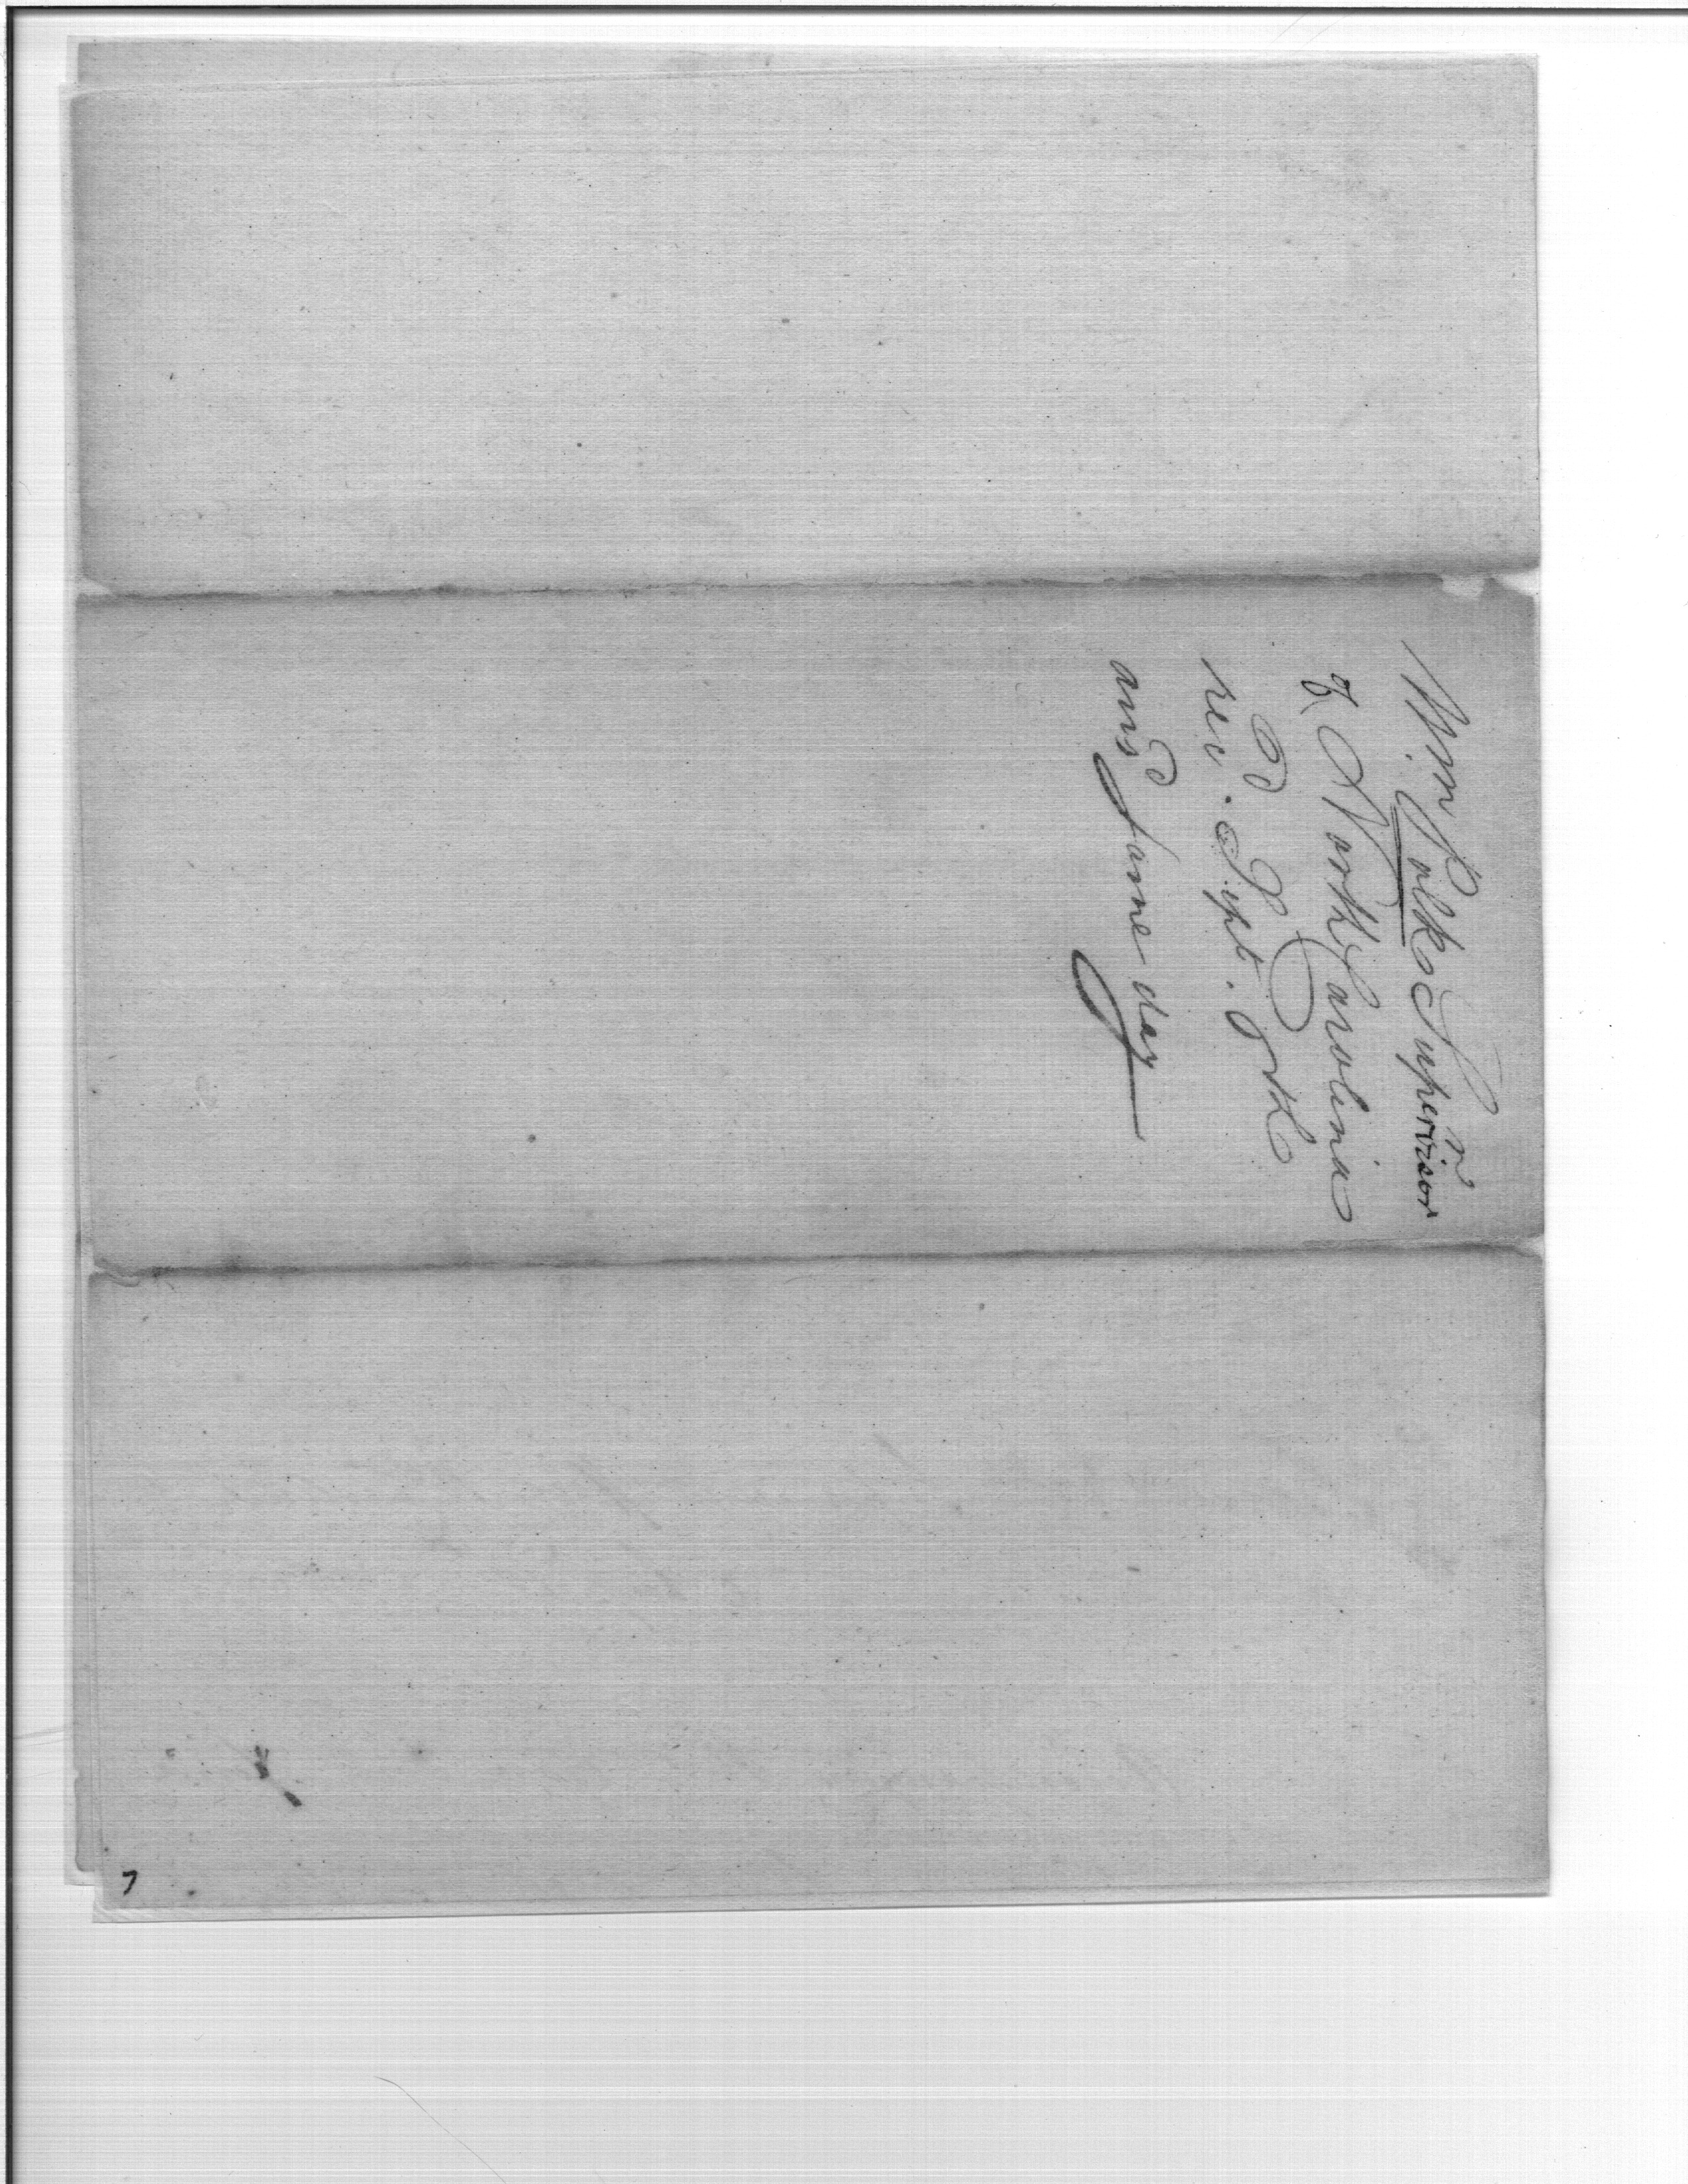 Wm. Polk Supervisor
of North Carolina
recd. Sept. 8th
ansd same day
7